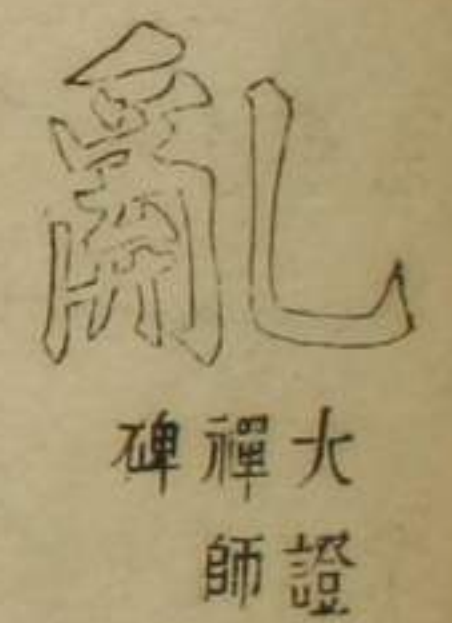 亂
大證
禪師
碑